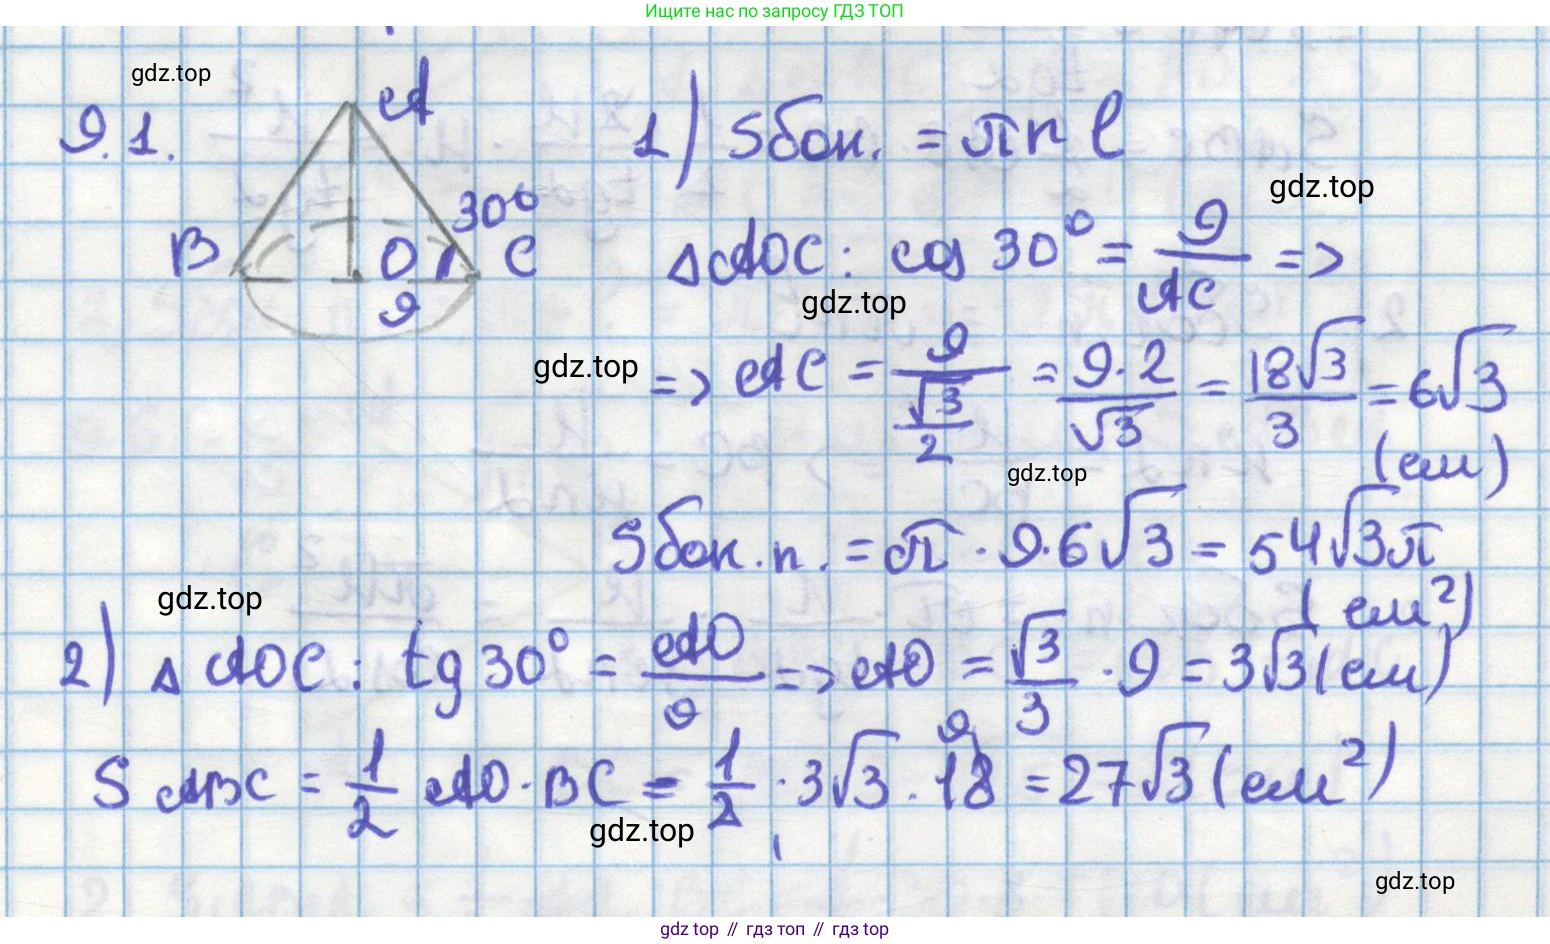 Ищите нас по запросу ГДЗ ТОП
gdz.top
9.1.
A
B
O
C
30°
9
1) Sбок. = πrl
gdz.top
ΔAOC: cos 30° = 9/AC =>
gdz.top
gdz.top
=> AC = 9/(√3/2) = 9·2/√3 = 18√3/3 = 6√3
(см)
gdz.top
Sбок.п. = π · 9·6√3 = 54√3π
(см²)
gdz.top
2) ΔAOC: tg 30° = AO/9 => AO = √3/3 · 9 = 3√3 (см)
S ABC = 1/2 AO·BC = 1/2 · 3√3 · 18 9 = 27√3 (см²)
gdz.top
gdz.top
gdz top // гдз топ // гдз top